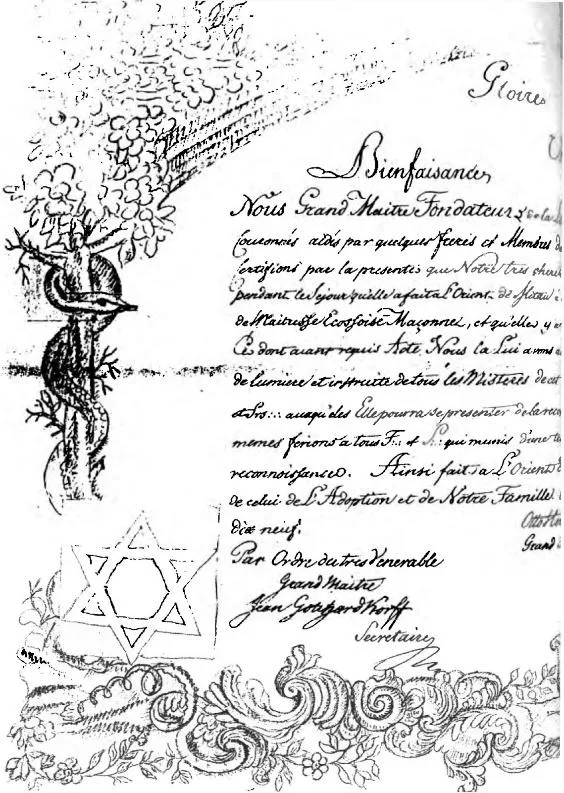 Gloire
Bienfaisance
Noûs Grand Maitre Fondateur de la
Couronnés aidés par quelques freres et Membres d
Certifions par la presente que Notre tres chere
pendant le Sejour qu'elle a fait a L'Orient de Mitau
de Maitresse Ecossoise Maçonne, et qu'elle y a
Ce dont aiant requis Acte, Nous la Lui avons a
de Lumiere et instruite de tous les Misteres de cet
et Srs∴ auxqu'eles Elle pourra se presenter de la reco
memes ferions a tous F∴ et S∴ qui munis d'une te
reconnoissance. Ainsi fait a L'Orient d
de celui de L'Adoption et de Notre Famille
dix neuf.
Otto
Grand
Par Ordre du tres Venerable
Grand Maitre
Jean Gotthard Korff
Secretaire